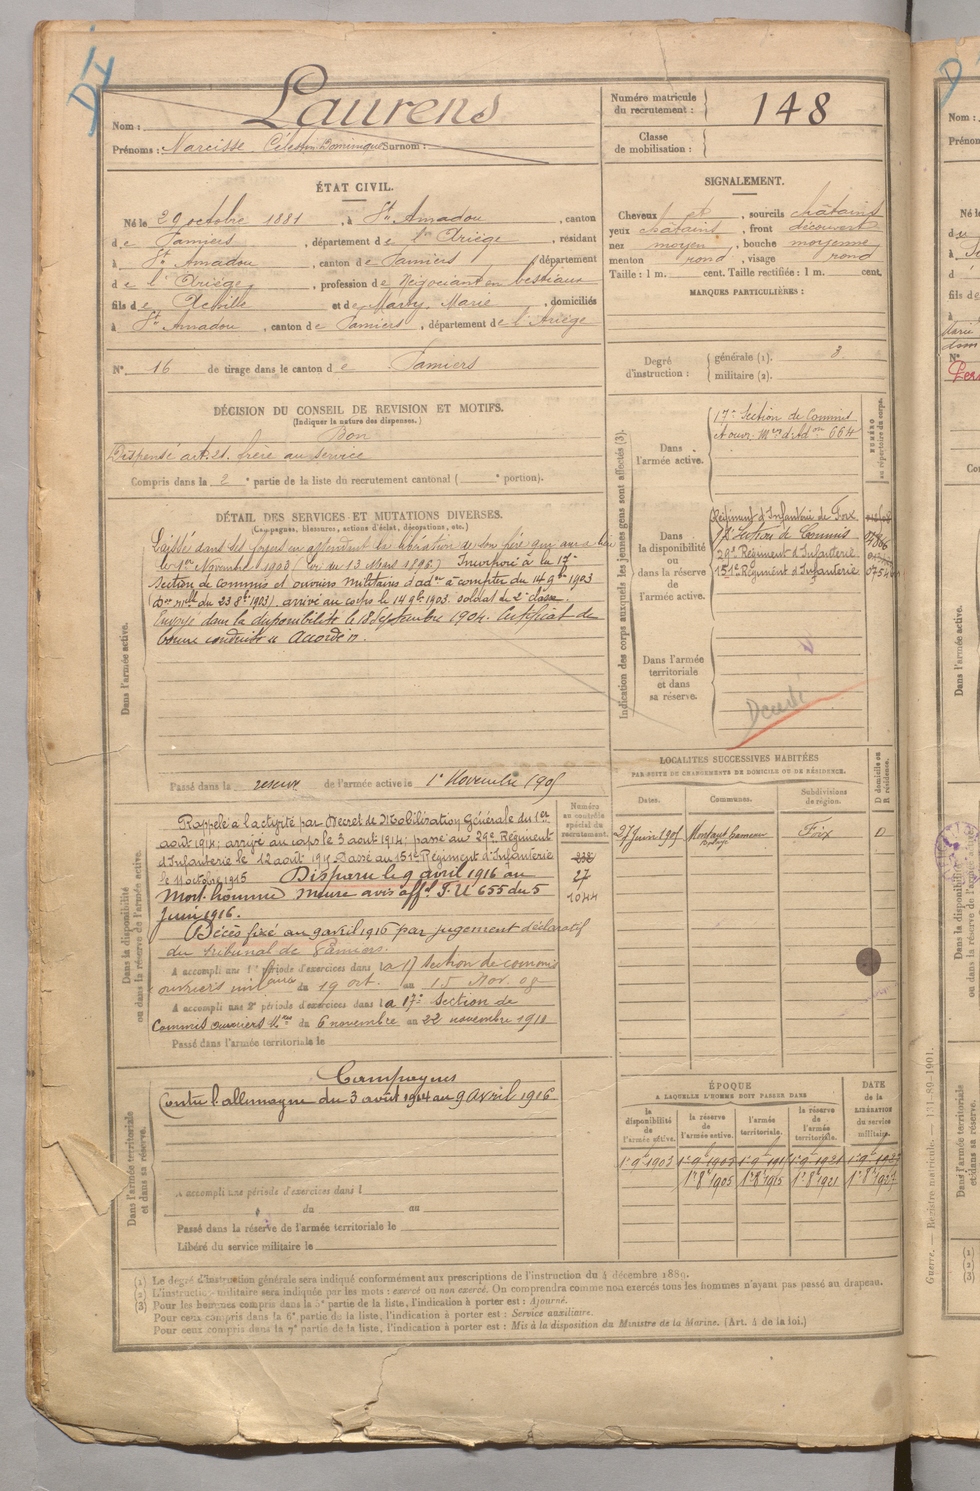 Nom : Laurens
Prénoms : Narcisse Célestin Dominique Surnom :
Numéro matricule du recrutement : 148
Classe de mobilisation :
ÉTAT CIVIL.
Né le 29 octobre 1881, à St. Amadou, canton
de Pamiers, département de l'Ariège, résidant
à St. Amadou, canton de Pamiers, département
de l'Ariège, profession de Négociant en bestiaux
fils de Achille et de Marty, Marie, domiciliés
à St Amadou, canton de Pamiers, département de l'Ariège
N° 16 de tirage dans le canton de Pamiers
SIGNALEMENT.
Cheveux et, sourcils châtains
yeux châtains, front découvert
nez moyen, bouche moyenne
menton rond, visage rond
Taille : 1 m. cent. Taille rectifiée : 1 m. cent.
MARQUES PARTICULIÈRES :
Degré d'instruction : générale (1). 3.
militaire (2).
DÉCISION DU CONSEIL DE REVISION ET MOTIFS.
(Indiquer la nature des dispenses.)
Bon
Dispensé art. 21. frère au service
Compris dans la 2e partie de la liste du recrutement cantonal (e portion).
DÉTAIL DES SERVICES ET MUTATIONS DIVERSES.
(Campagnes, blessures, actions d'éclat, décorations, etc.)
Dans l'armée active.
Laissé dans ses foyers en attendant la libération de son frère qui aura lieu
le 1er Novembre 1903 (Cir. du 13 Mars 1896) Incorporé à la 17e
Section de commis et ouvriers militaires d'adon à compter du 14 9bre 1903
(Don mlle du 23 8bre 1903) arrivé au corps le 14 9bre 1903. soldat de 2e classe.
Envoyé dans la disponibilité le 18 Septembre 1904. Certificat de
bonne conduite "Accordé".
Passé dans la réserve de l'armée active le 1er Novembre 1905
Indication des corps auxquels les jeunes gens sont affectés (3).
NUMÉRO au répertoire du corps.
Dans l'armée active.
17e Section de Commis
et ouvr. Mres d'Adon 664
Dans la disponibilité ou dans la réserve de l'armée active.
Régiment d'Infanterie de Foix
17e Section de Commis
29e Régiment d'Infanterie
151e Régiment d'Infanterie
Dans l'armée territoriale et dans sa réserve.
Décédé
LOCALITÉS SUCCESSIVES HABITÉES
PAR SUITE DE CHANGEMENTS DE DOMICILE OU DE RÉSIDENCE.
Dates. Communes. Subdivisions de région. D domicile ou R résidence.
27 Juin 1905 Foix D
Dans la disponibilité ou dans la réserve de l'armée active.
Numéro au contrôle spécial du recrutement.
Rappelé à l'activité par Décret de Mobilisation Générale du 1er
août 1914; arrivé au corps le 3 août 1914; passé au 29e Régiment
d'Infanterie le 12 août 1915. Passé au 151e Régiment d'Infanterie
le 11 octobre 1915 Disparu le 9 avril 1916 au 27
Mort-homme Meuse avis offl. I.U 655 du 5 1044
Juin 1916.
Décès fixé au 9 avril 1916 par jugement déclaratif
du tribunal de Pamiers.
A accompli une 1re période d'exercices dans la 17 section de commis
ouvriers militaires du 19 oct. au 15 Nov. 08
A accompli une 2e période d'exercices dans la 17e Section de
Commis ouvriers Mres du 6 novembre au 22 novembre 1910
Passé dans l'armée territoriale le
Dans l'armée territoriale et dans sa réserve.
Campagnes
Contre l'allemagne du 3 août 1914 au 9 Avril 1916
A accompli une période d'exercices dans l
du au
Passé dans la réserve de l'armée territoriale le
Libéré du service militaire le
ÉPOQUE
A LAQUELLE L'HOMME DOIT PASSER DANS
DATE de la LIBÉRATION du service militaire.
la disponibilité de l'armée active. la réserve de l'armée active. l'armée territoriale. la réserve de l'armée territoriale.
1er 9bre 1903
1er 8bre 1905 1er 8bre 1915 1er 8bre 1921 1er 8bre 1927
(1) Le degré d'instruction générale sera indiqué conformément aux prescriptions de l'instruction du 4 décembre 1889.
(2) L'instruction militaire sera indiquée par les mots : exercé ou non exercé. On comprendra comme non exercés tous les hommes n'ayant pas passé au drapeau.
(3) Pour les hommes compris dans la 5e partie de la liste, l'indication à porter est : Ajourné.
Pour ceux compris dans la 6e partie de la liste, l'indication à porter est : Service auxiliaire.
Pour ceux compris dans la 7e partie de la liste, l'indication à porter est : Mis à la disposition du Ministre de la Marine. (Art. 4 de la loi.)
Guerre. — Registre matricule. — 131-89-1901.